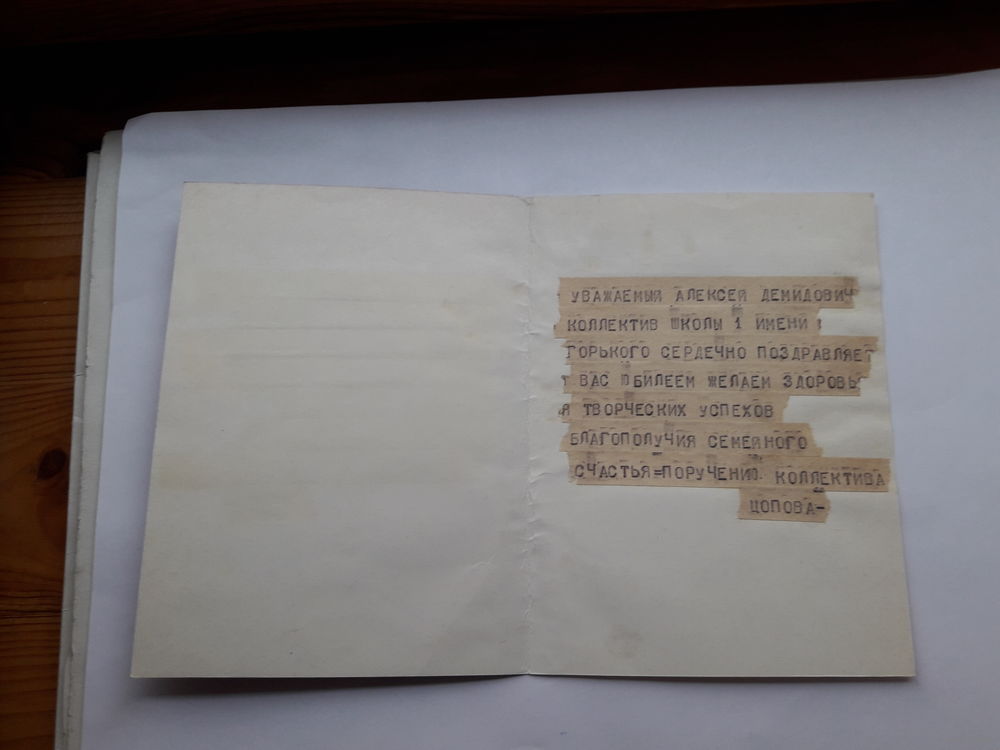 УВАЖАЕМЫЙ АЛЕКСЕЙ ДЕМИДОВИЧ
КОЛЛЕКТИВ ШКОЛЫ 1 ИМЕНИ
ГОРЬКОГО СЕРДЕЧНО ПОЗДРАВЛЯЕТ
ВАС ЮБИЛЕЕМ ЖЕЛАЕМ ЗДОРОВЬ
Я ТВОРЧЕСКИХ УСПЕХОВ
БЛАГОПОЛУЧИЯ СЕМЕЙНОГО
СЧАСТЬЯ=ПОРУЧЕНИЮ КОЛЛЕКТИВА
ЦОПОВА-